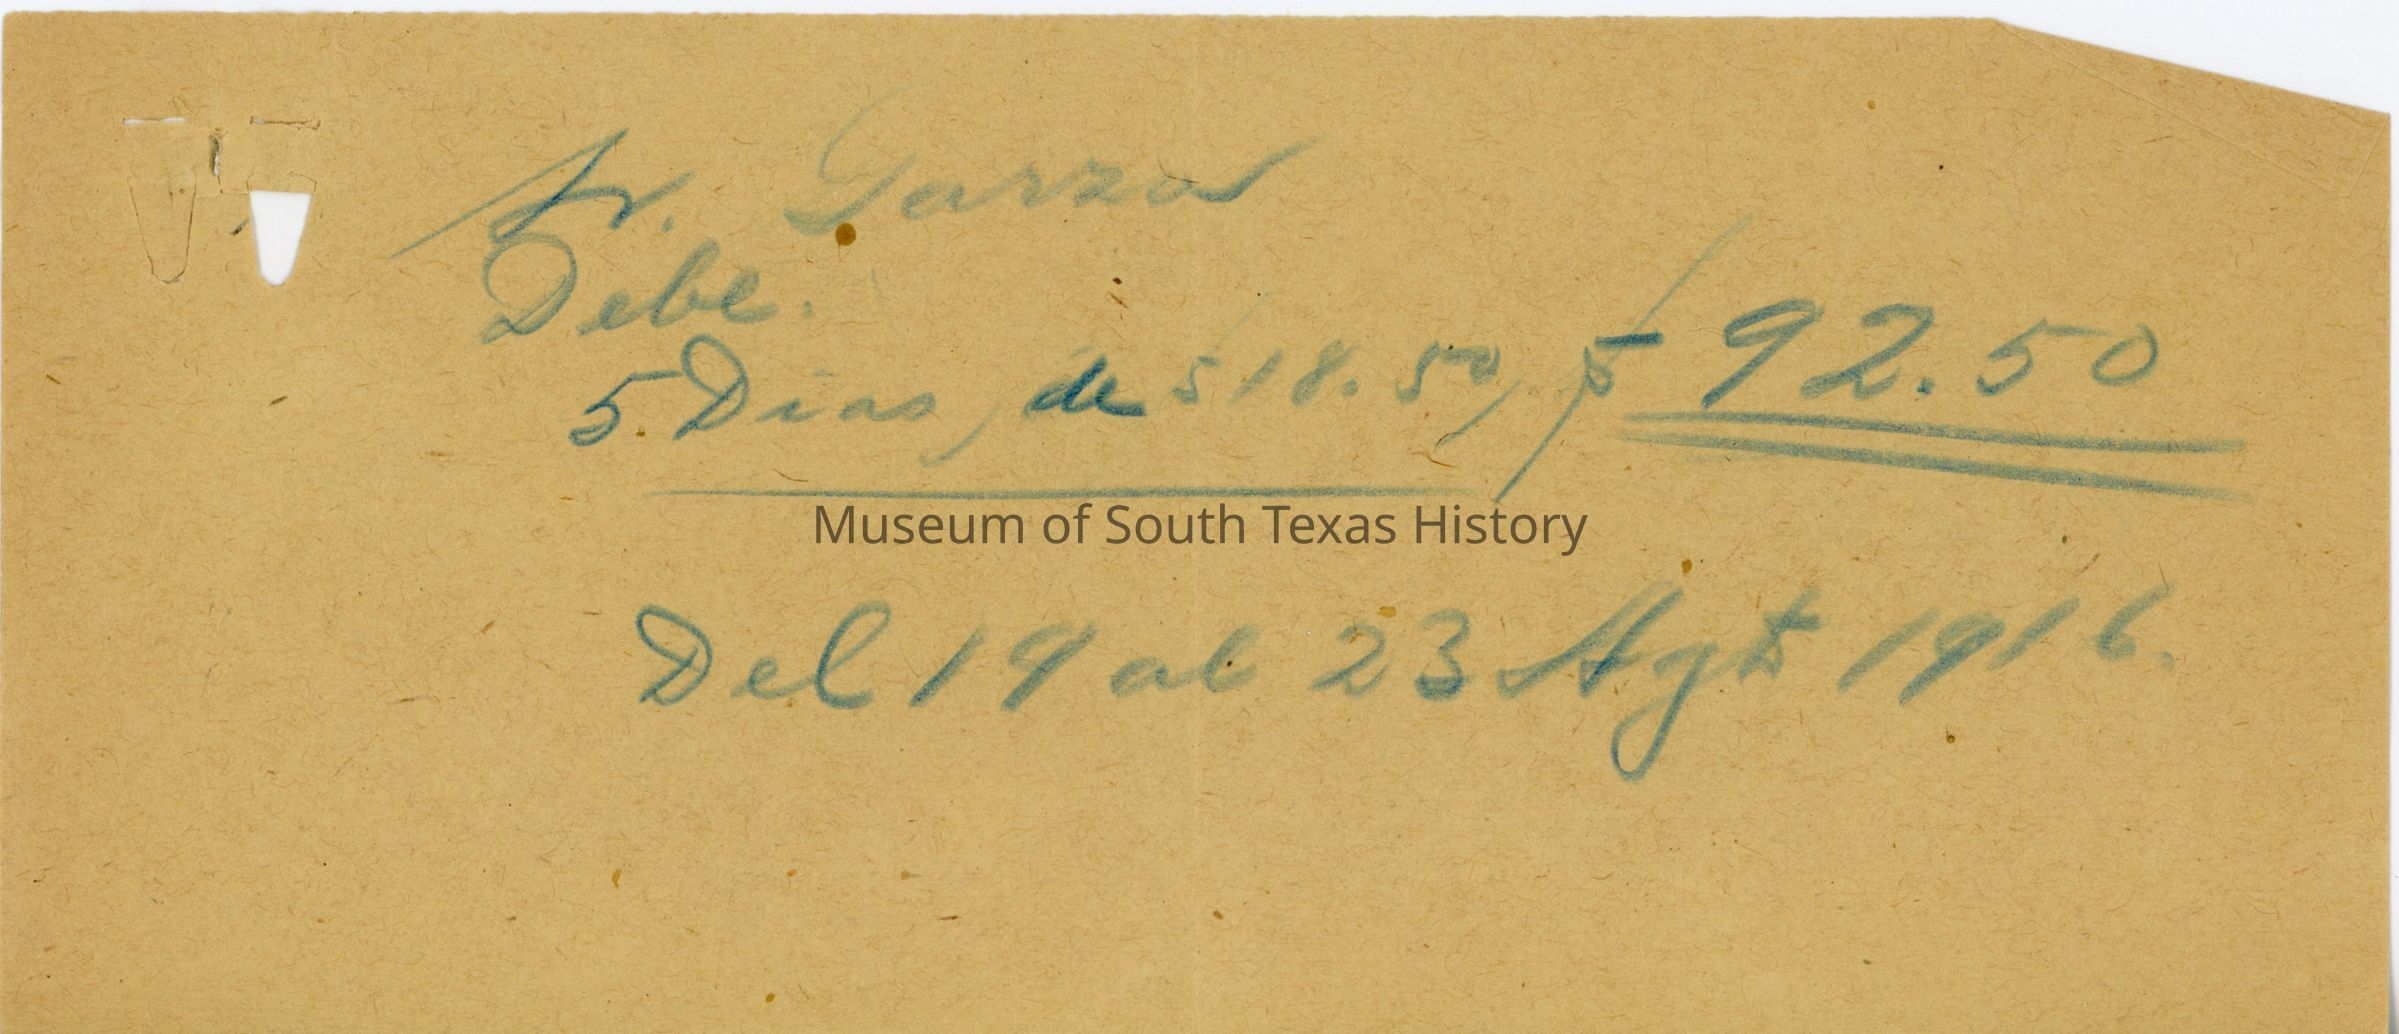 Sr. Garza
Debe.
5 Dias, de $18.50, $ 92.50
Museum of South Texas History
Del 19 al 23 Agto 1916.